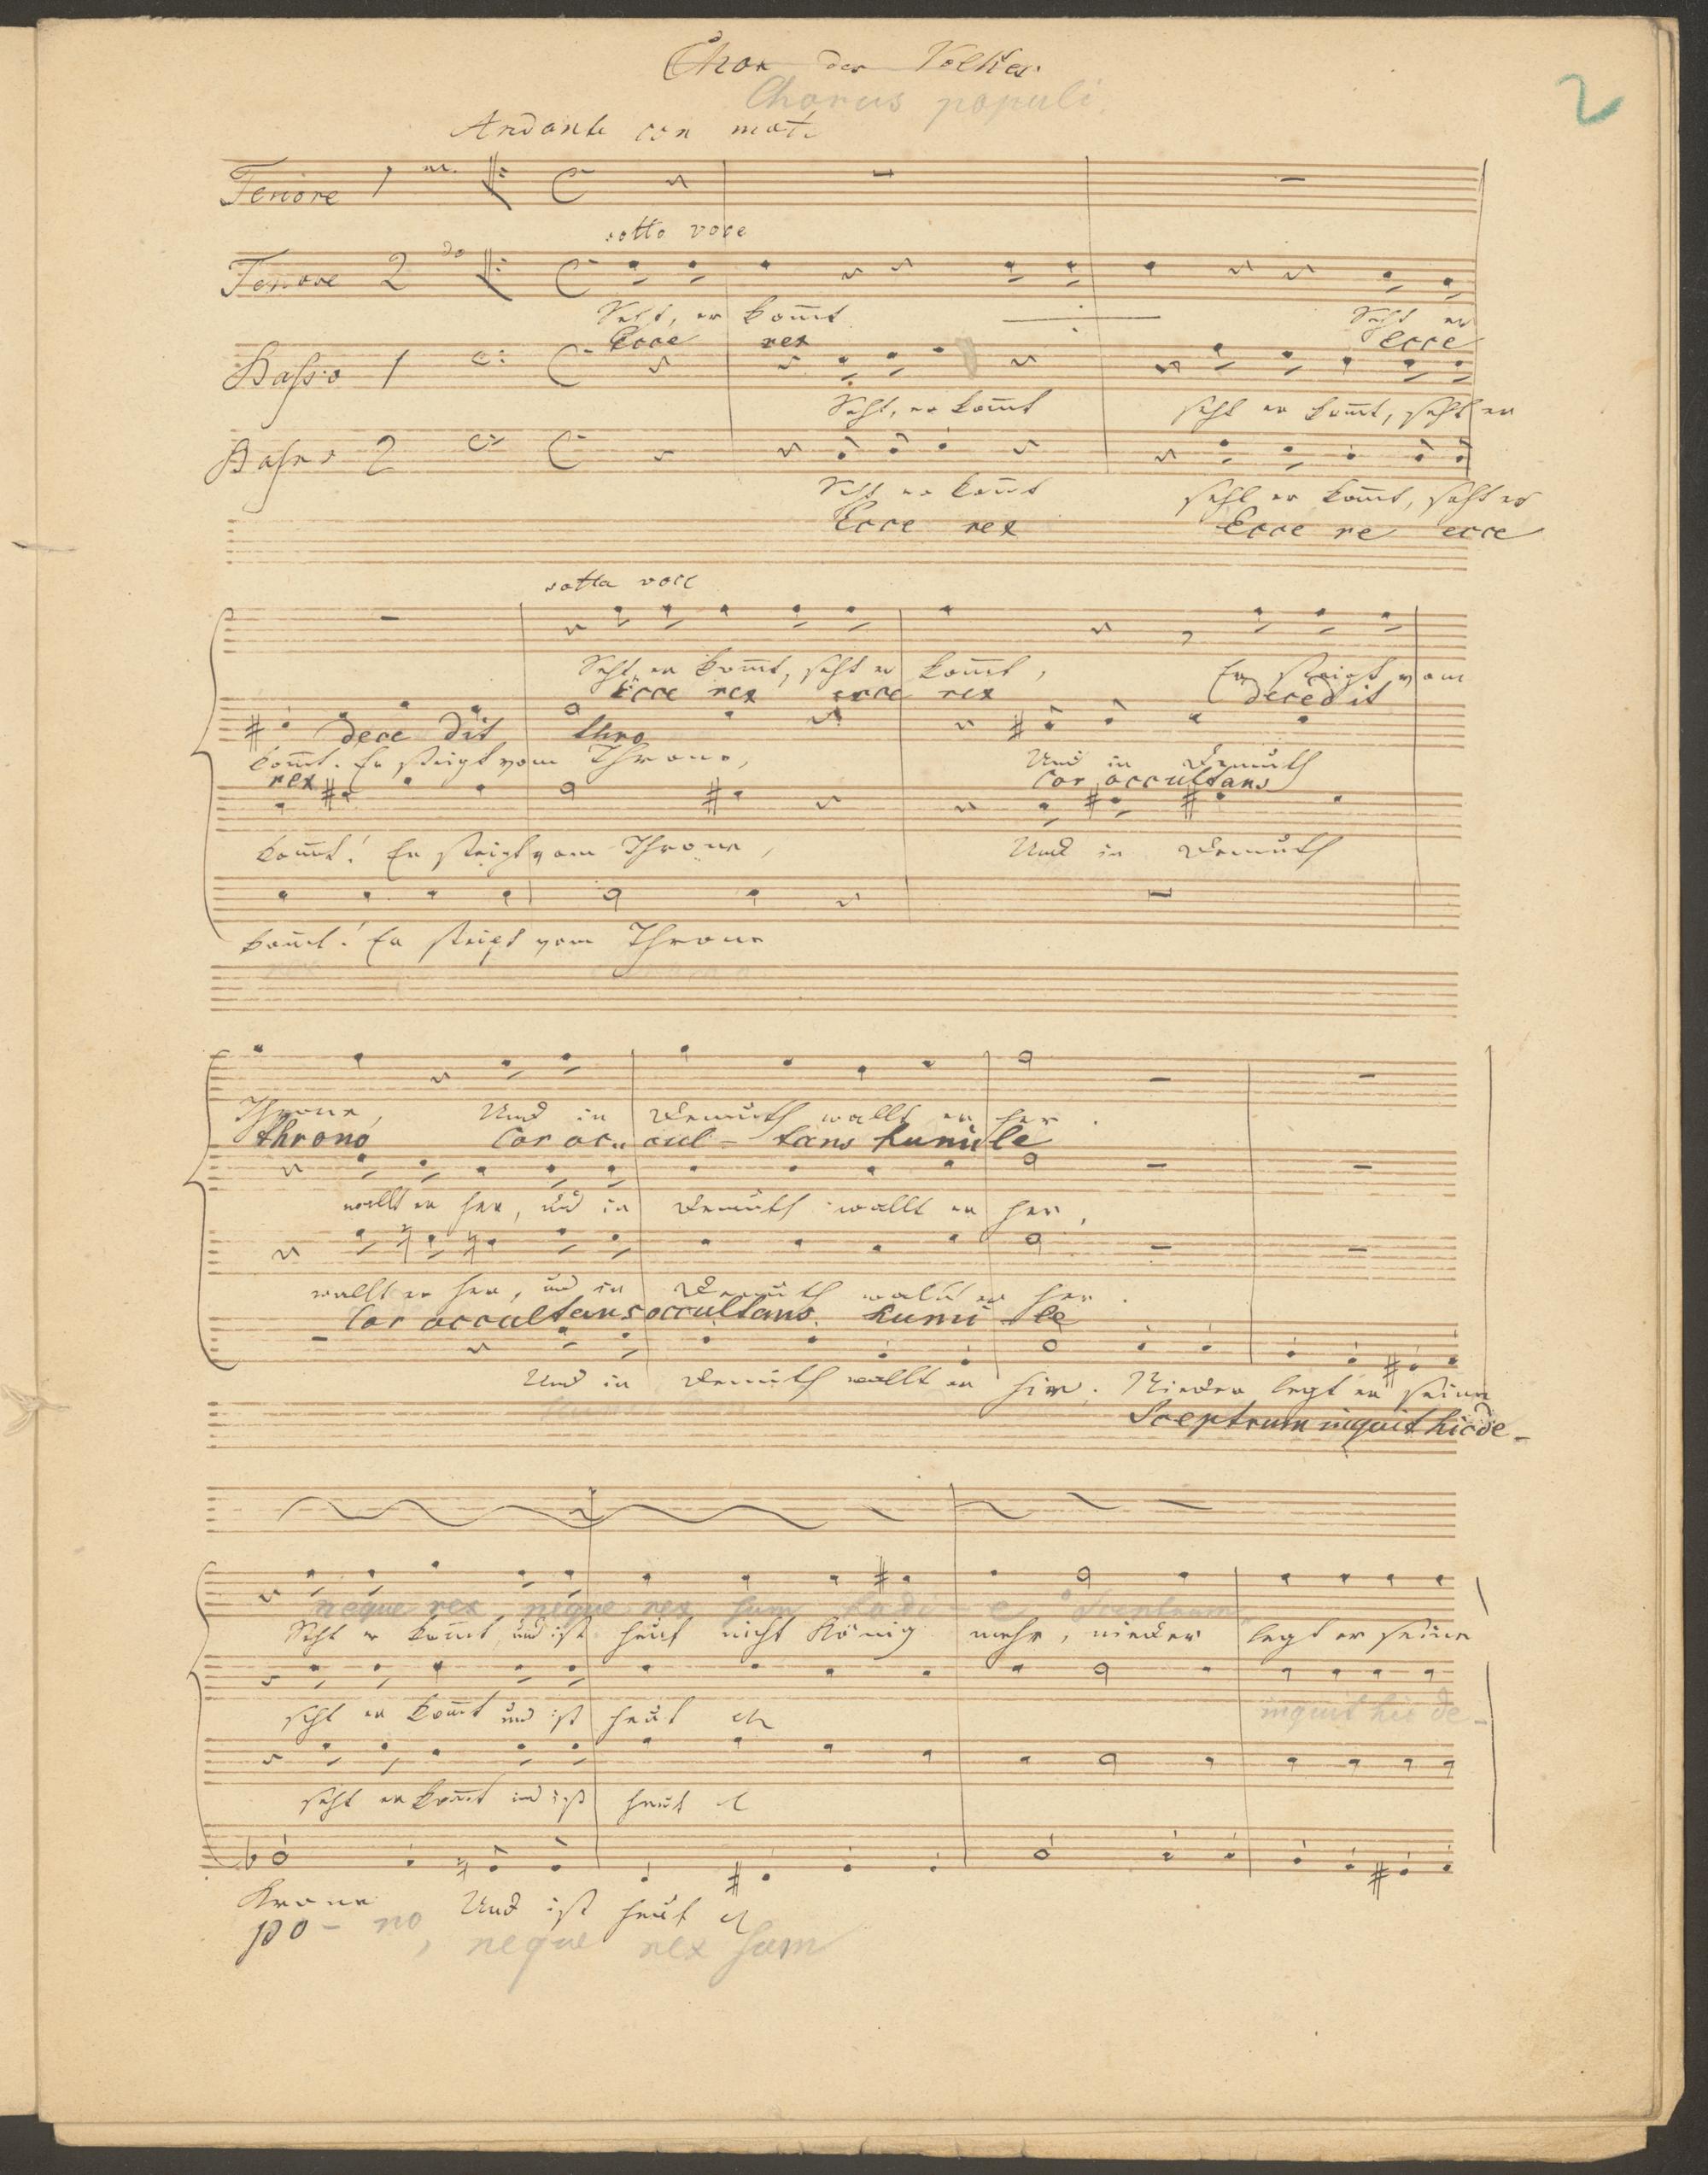 Chor des Volkes.
Chorus populi.
2
Andante con moto
Tenore 1 mo.
sotto voce
Tenore 2 do
Seht, er kom̄t Seht er
Ecce rex Ecce
Basso 1
Seht, er kom̄t seht er kom̄t, seht er
Basso 2
Seht er kom̄t seht er kom̄t, seht er
Ecce rex Ecce re ecce
sotto voce
Seht er kom̄t, seht er kom̄t, Er steigt vom
Ecce rex ecce rex decedit
dece dit thro
kom̄t. Er steigt vom Throne, Und in Demuth
rex Cor occultans
kom̄t! Er steigt vom Throne, Und in Demuth
kom̄t! Er steigt vom Throne
rex
Throne, Und in Demuth wallt er her.
throno Cor oc cul - tans humile
wallt er her, und in Demuth wallt er her,
wallt er her, und in Demuth wallt er her.
Cor occultans occultans humi - le
Und in Demuth wallt er hier. Nieder legt er seine
Sceptrum inquit hic de -
neque rex neque rex sum hodi - e Sceptrum
Seht er kom̄t und ist heut nicht König mehr, nieder legt er seine
seht er kom̄t und ist heut
inquit hic de -
seht er kom̄t und ist heut
Krone Und ist heut
po - no, neque rex sum